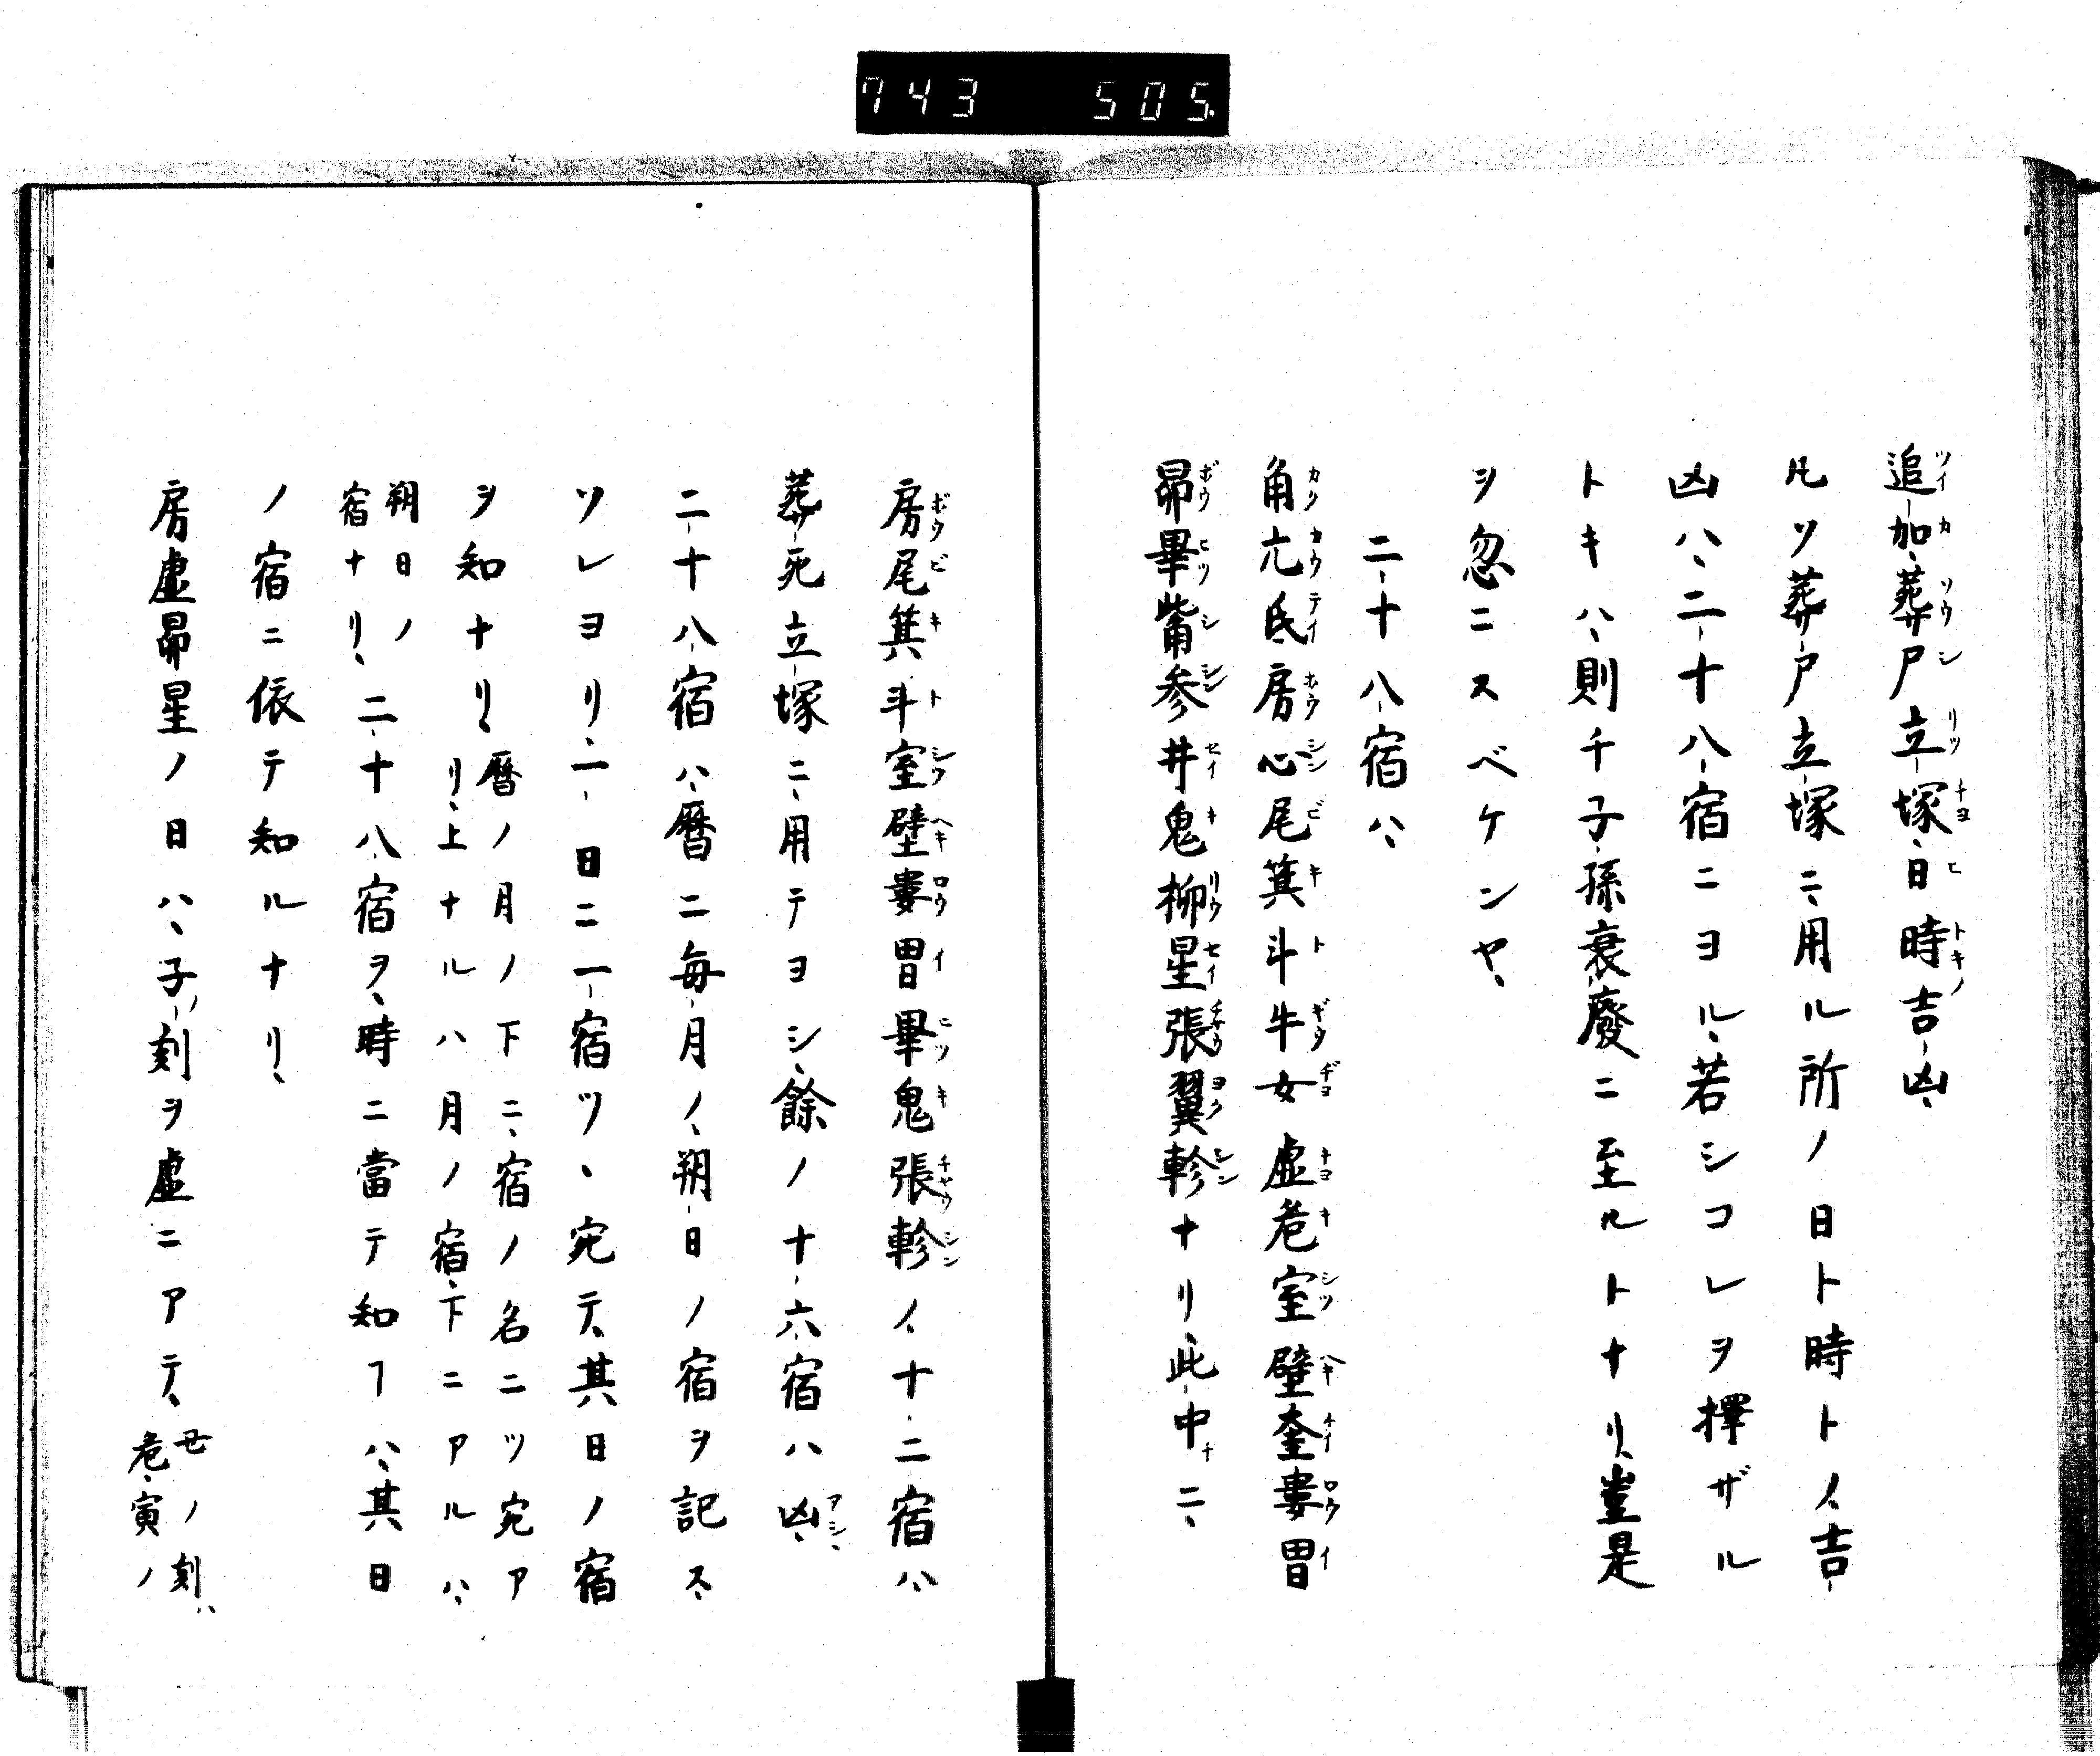 743 505.
追加、葬尸立塚、日時吉凶、
凡ソ葬尸立塚ニ、用ル所ノ日ト時トノ、吉
凶ハ、二十八宿ニヨル、若シコレヲ擇ザル
トキハ、則千子孫衰廢ニ至ルトナリ、豈是
ヲ忽ニスベケンヤ、
二十八宿ハ、
角亢氐房心尾箕斗牛女虚危室壁奎婁胃
昴畢觜参井鬼柳星張翼軫ナリ、此中ニ、
房尾箕斗室壁婁胃畢鬼張軫ノ、十二宿ハ、
葬死立塚ニ、用テヨシ、餘ノ十六宿ハ凶、
二十八宿ハ、暦ニ毎月ノ、朔日ノ宿ヲ記ス、
ソレヨリ、一日ニ一宿ツヽ宛テ、其日ノ宿
ヲ知ナリ、暦ノ月ノ下ニ、宿ノ名ニツ宛ア
リ、上ナルハ月ノ宿、下ニアルハ、
朔日ノ
宿ナリ、二十八宿ヲ、時ニ當テ知ヿハ、其日
ノ宿ニ依テ知ルナリ、
房虚昴星ノ日ハ、子ノ刻ヲ虚ニアテ、丑ノ刻ハ
危、寅ノ